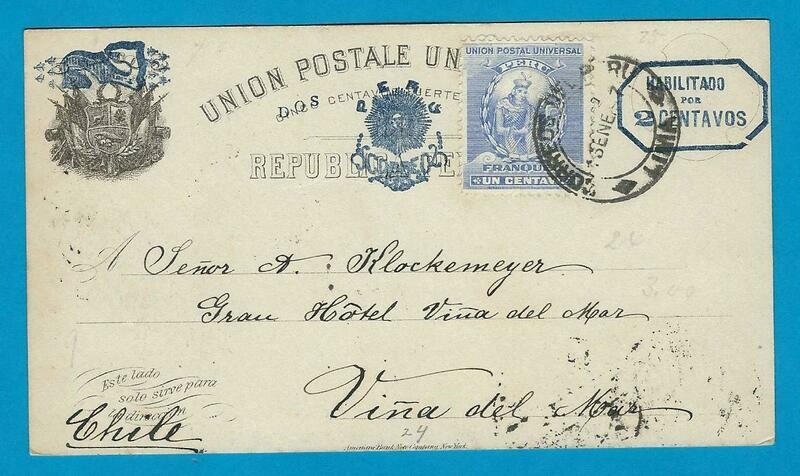 UNION POSTALE UN
DOS
CENTAVOS
PERÚ
REPUBLICA
UNION POSTAL UNIVERSAL
PERU
FRANQUEO
UN CENTAVO
CORREOS DEL PERU
LIMA
ENE
HABILITADO
POR
2 CENTAVOS
A Señor A. Klockemeyer
Gran Hôtel Viña del Mar
Viña del Mar
Este lado
solo sirve para
la direccion
Chile
24
3.00
American Bank Note Company, New York.